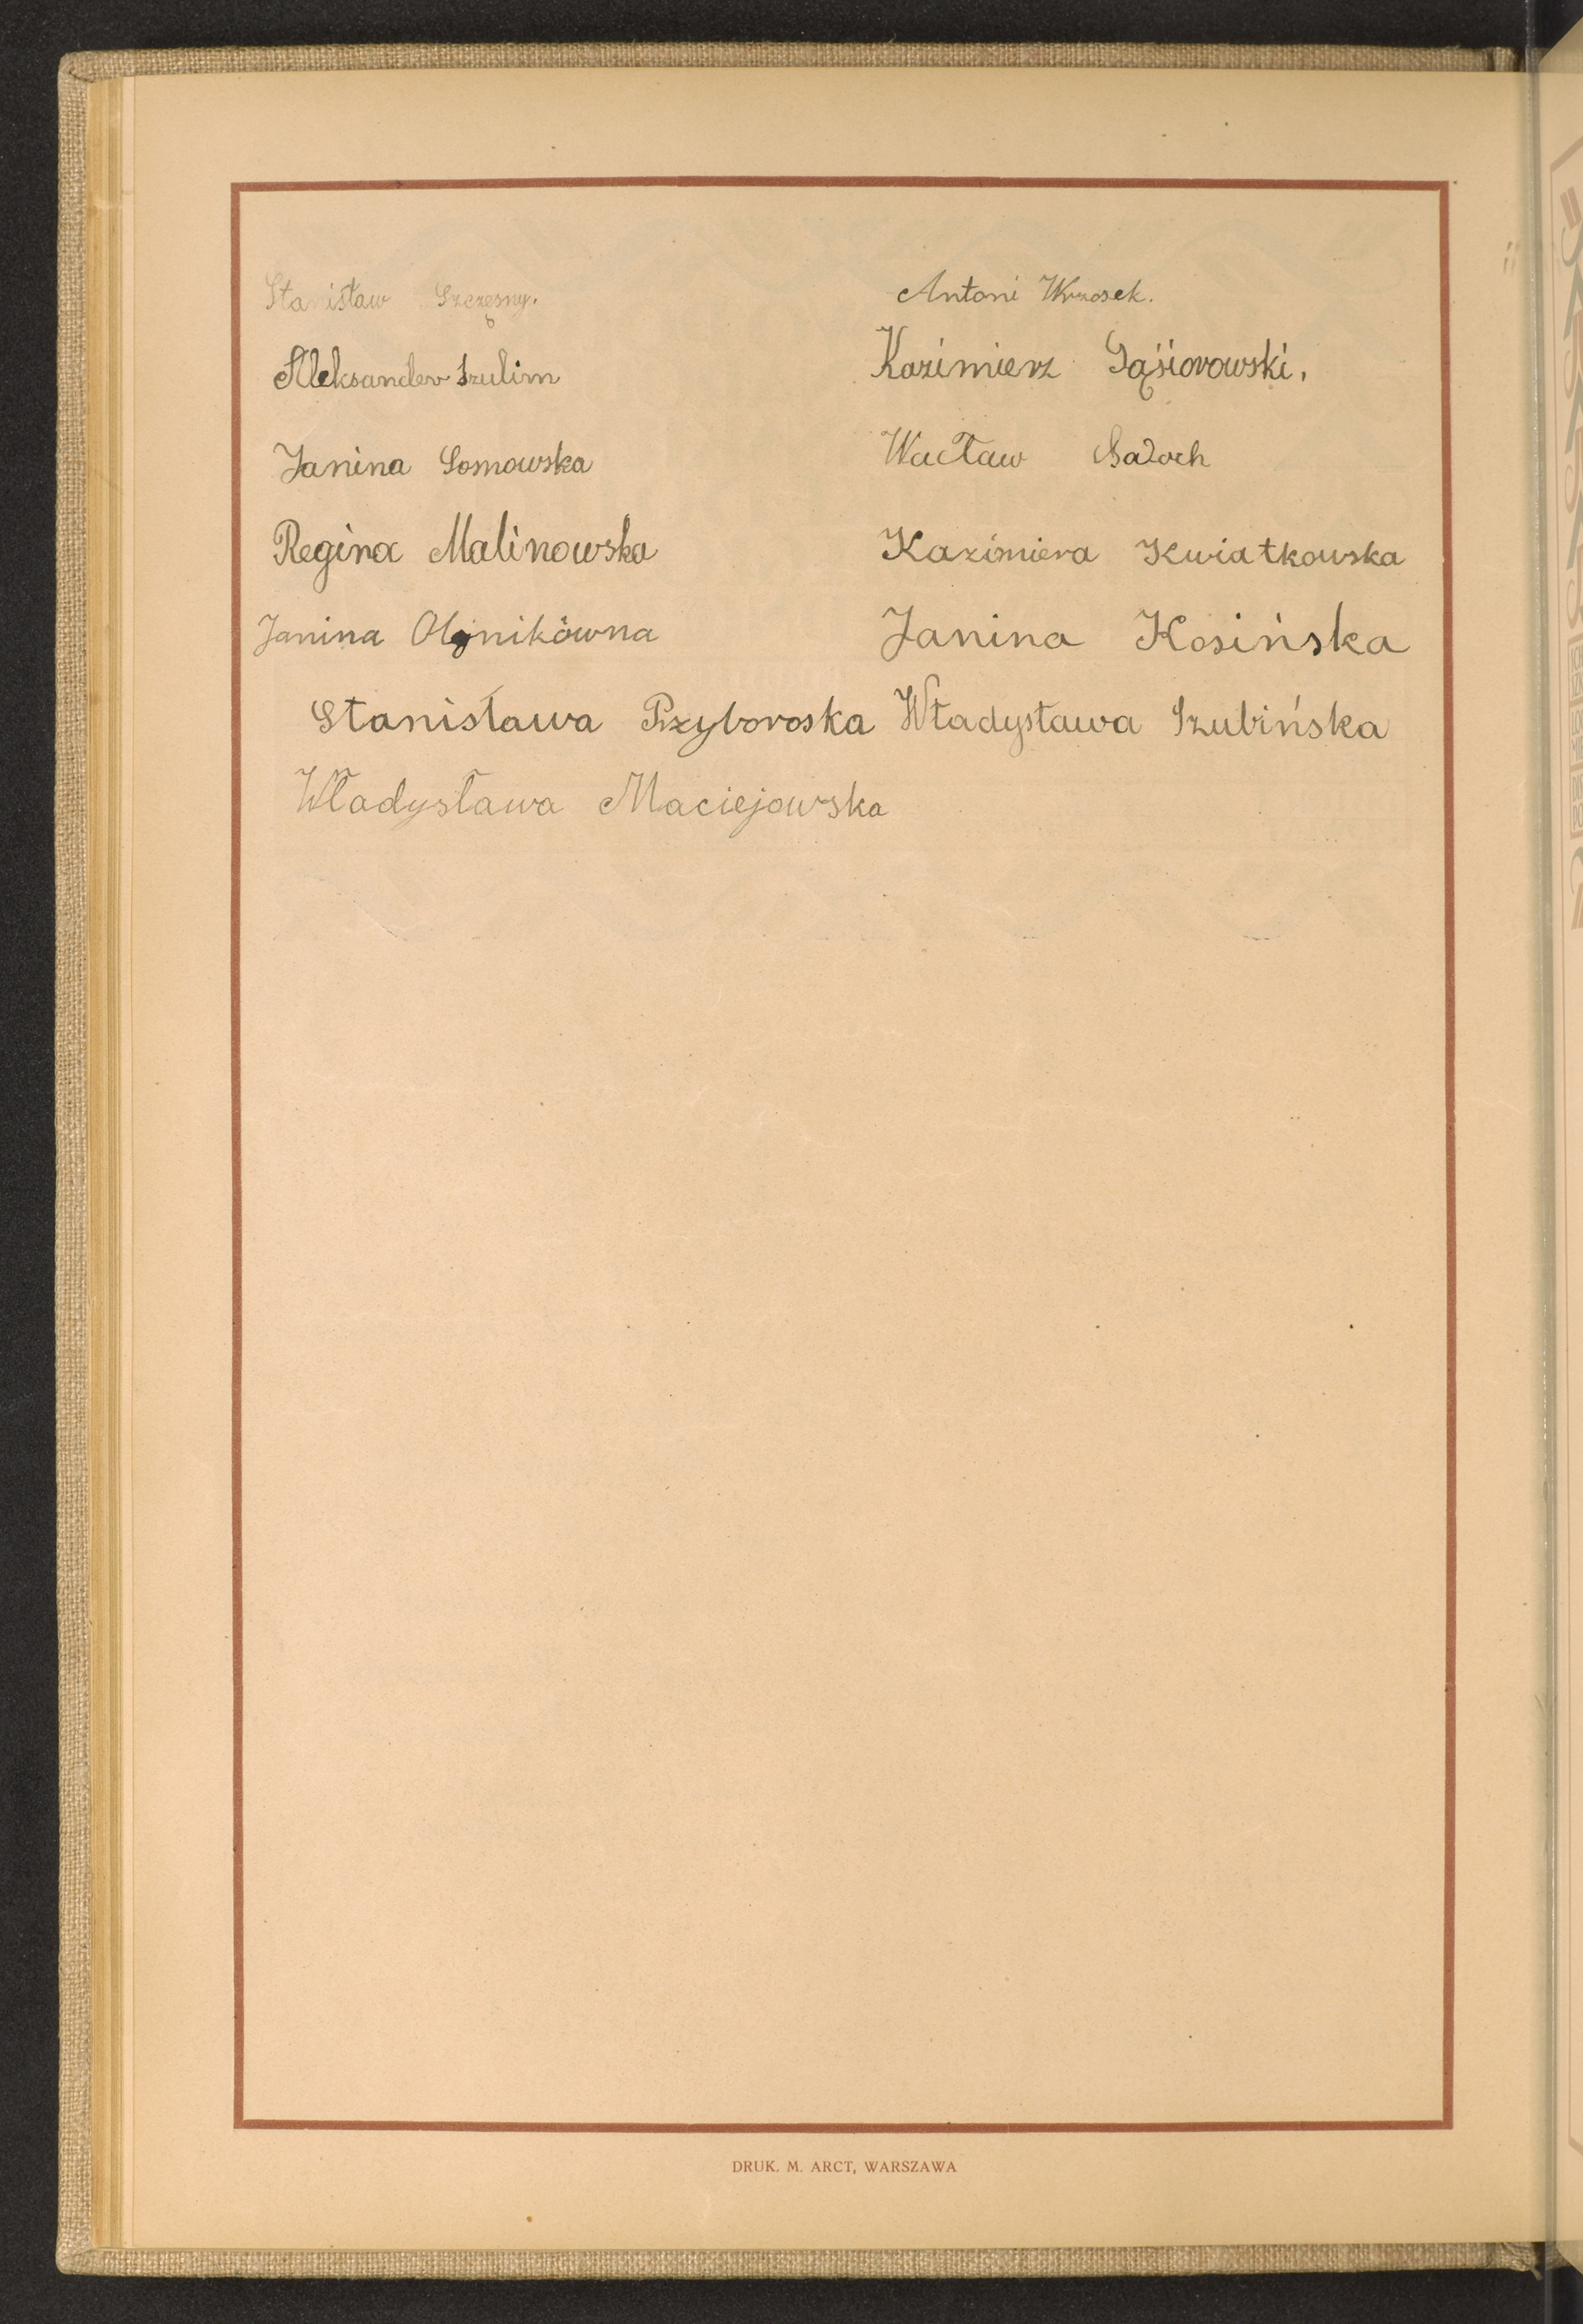 Stanisław Szczęsny. Antoni Wrzosek.
Aleksander Szulim Kazimierz Gąsiorowski.
Janina Sosnowska Wacław Sadoch
Regina Malinowska Kazimiera Kwiatkowska
Janina Janina Kosińska
Stanisława Przyboroska Władysława Szubińska
Władysława Maciejowska
DRUK. M. ARCT, WARSZAWA